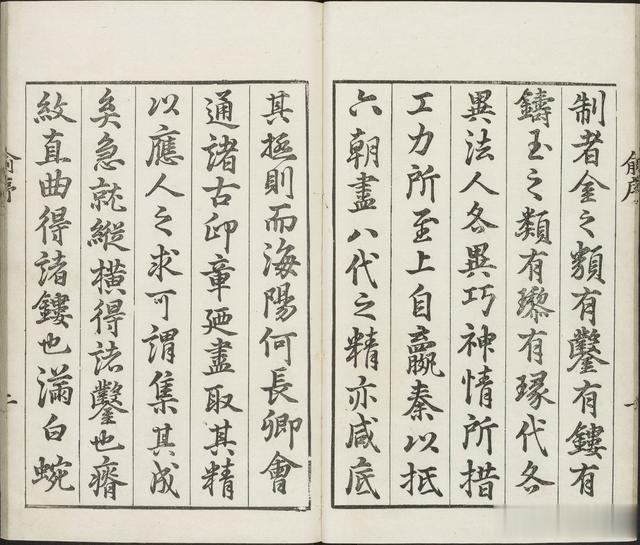 制者金之類有鑿有鏤有
鑄玉之類有瓈有琢代各
異法人各異巧神情所措
工力所至上自嬴秦以抵
六朝盡八代之精亦咸底
其極則而海陽何長卿會
通諸古印章廼盡取其精
以應人之求可謂集其成
矣急就縱橫得諸鑿也瘠
紋直曲得諸鏤也滿白蜿
俞序
二